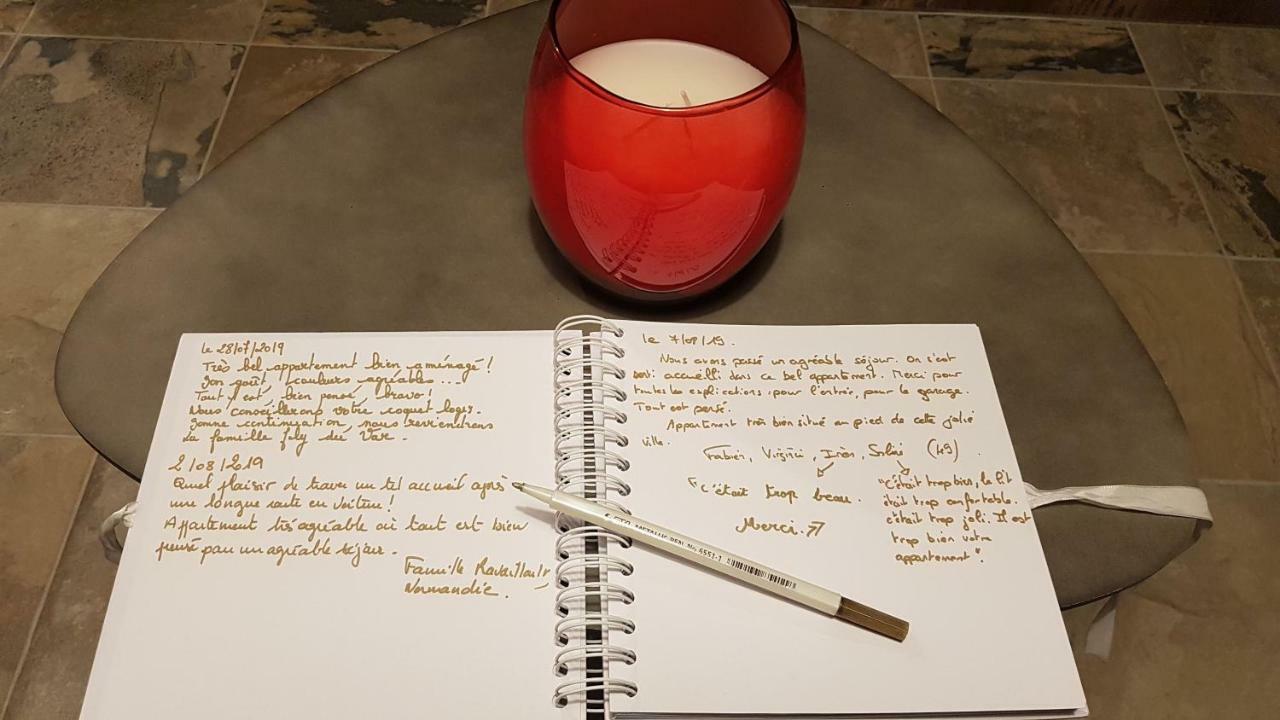 le 28/07/2019
Très bel appartement bien aménagé !
Bon goût, couleurs agréables ...
Tout y est, bien pensé, bravo !
Nous conseillerons votre coquet logis.
Bonne continuation, nous reviendrons
La famille du Var.
2/08/2019
Quel plaisir de trouver un tel accueil après
une longue route en voiture !
Appartement très agréable où tout est bien
pensé pour un agréable séjour.
Famille
Normandie.
le 7/08/19.
Nous avons passé un agréable séjour. On s'est
senti accueilli dans ce bel appartement. Merci pour
toutes les explications, pour l'entrée, pour le garage.
Tout est pensé.
Appartement très bien situé au pied de cette jolie
ville.
Fabien, Virginie, (49).
"c'était trop beau.
Merci.
"c'était trop bien, le lit
était trop confortable.
c'était trop joli. Il est
trop bien votre
appartement".
METALLIC 6551-1